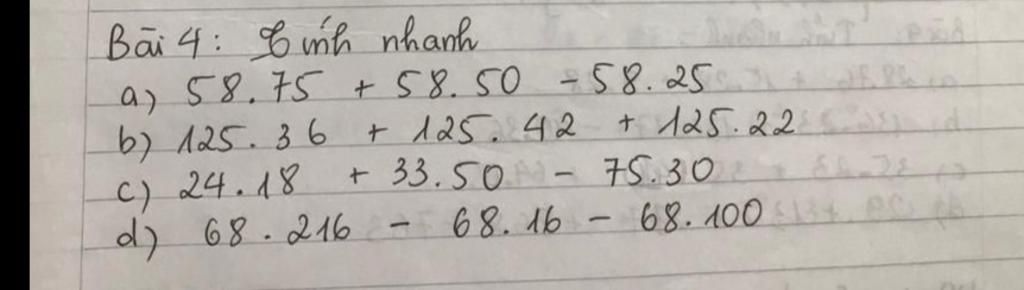 Bài 4: Tính nhanh
a) 58.75 + 58.50 - 58.25
b) 125.36 + 125.42 + 125.22
c) 24.18 + 33.50 - 75.30
d) 68.216 - 68.16 - 68.100